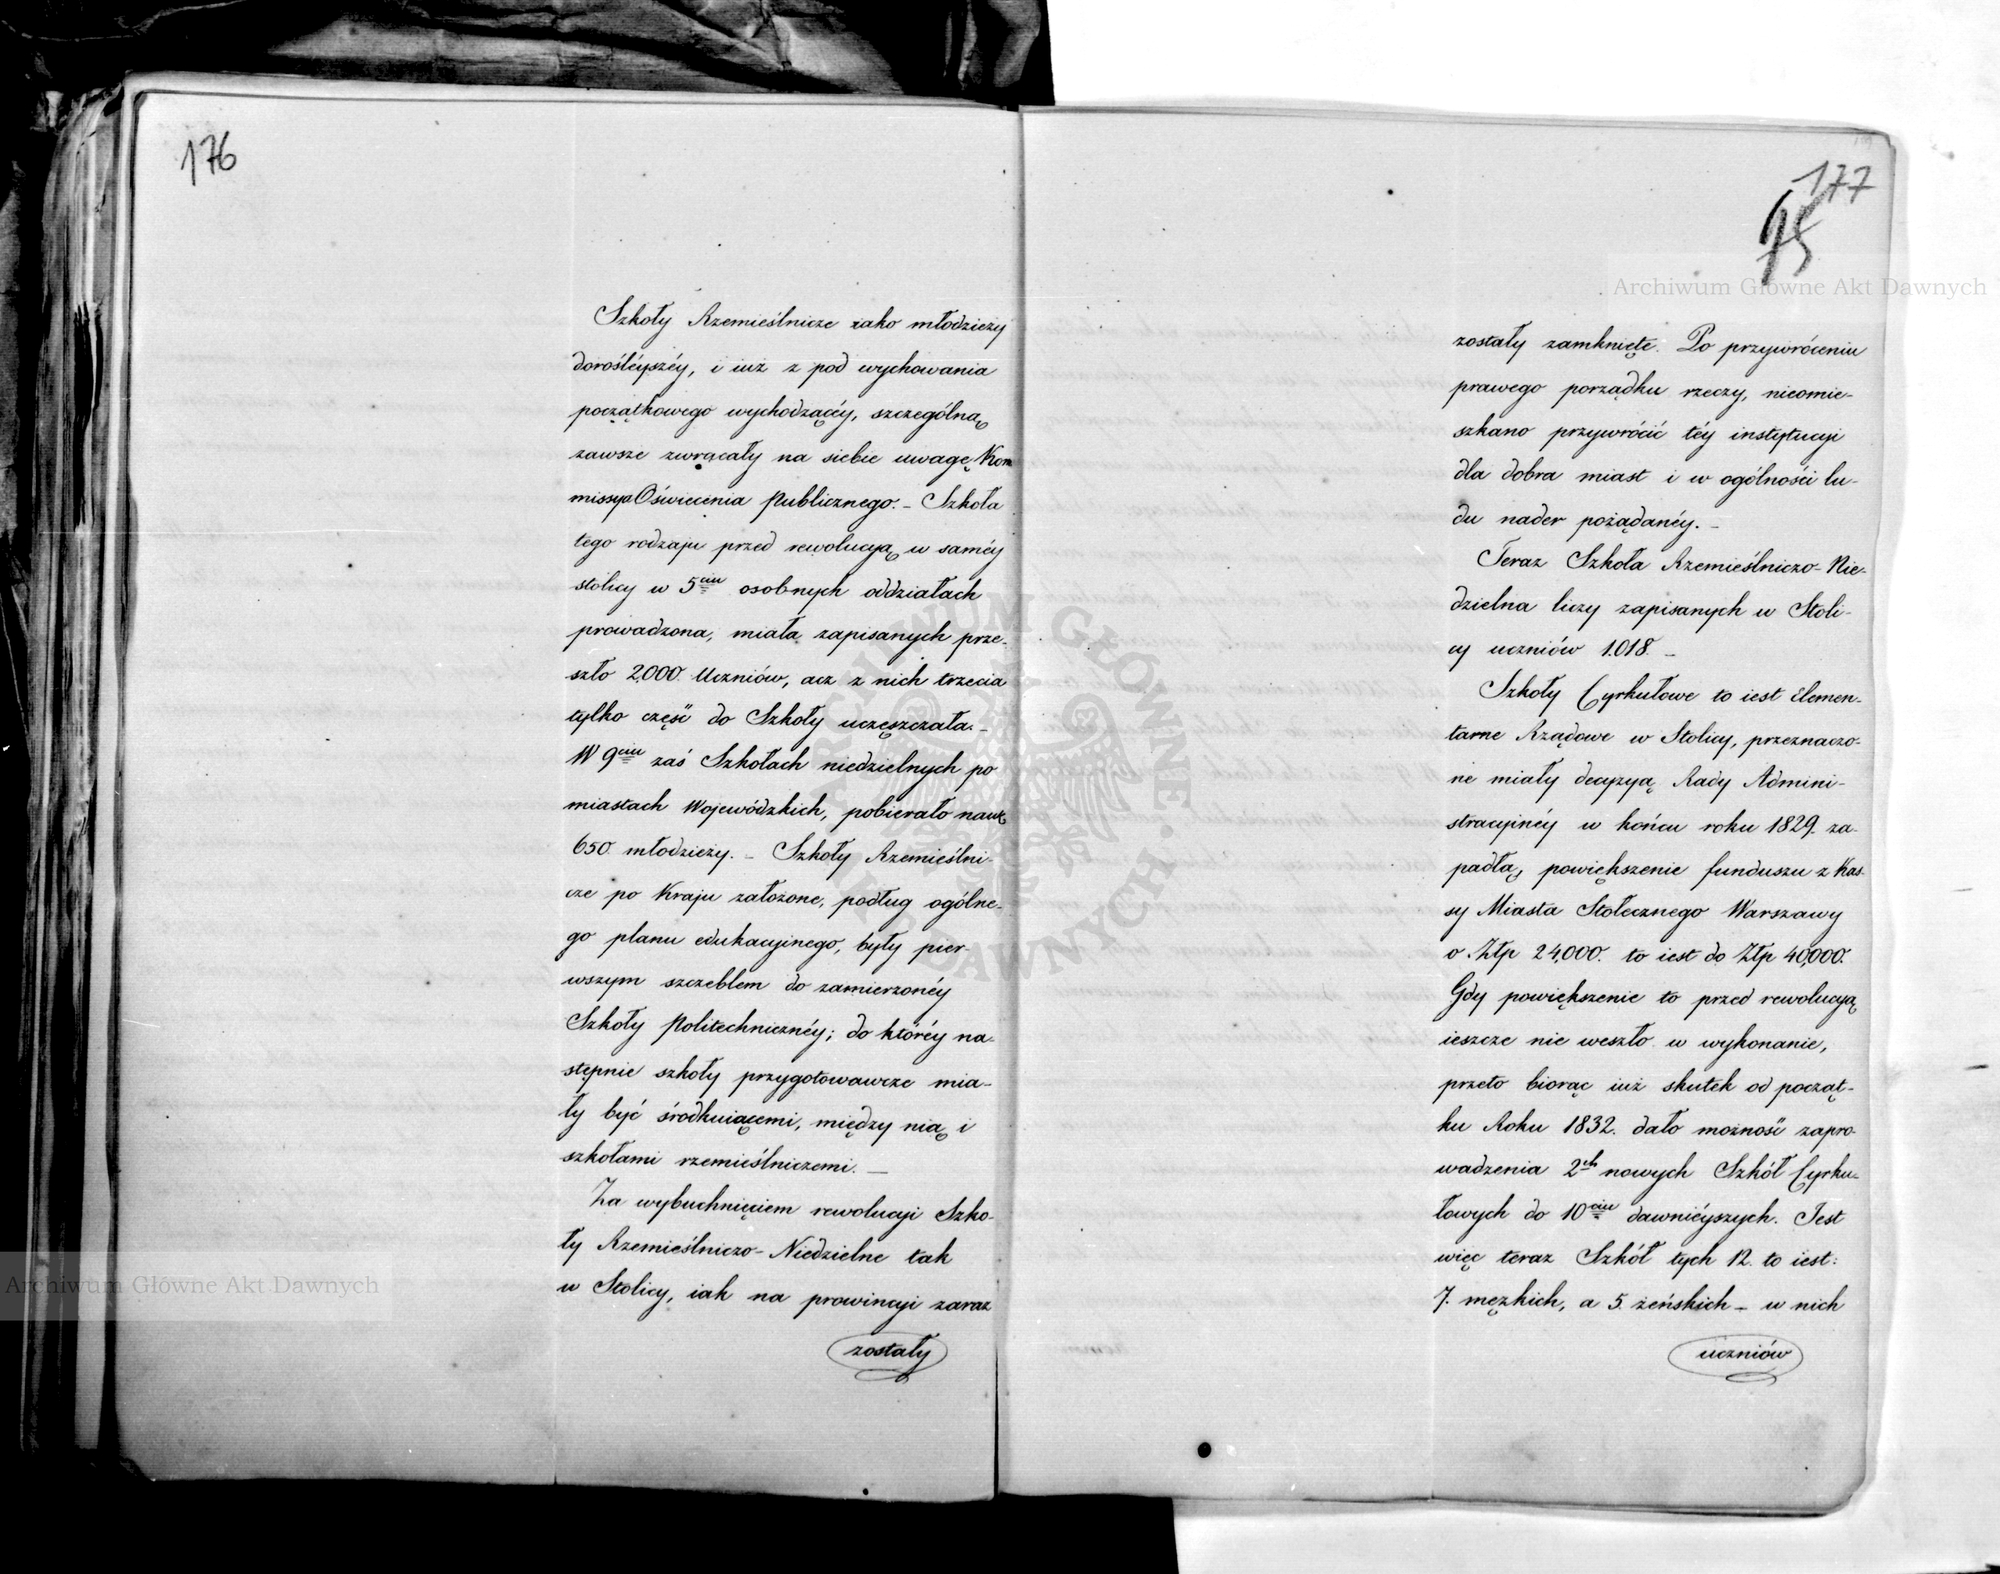 176
Szkoły Rzemieślnicze iako młodzieży
dorośléyszéy, i iuż z pod wychowania
początkowego wychodzącéy, szczególną
zawsze zwracały na siebie uwagę Kom
missyi Oświecenia Publicznego. – Szkoła
tego rodzaju przed rewolucyą w saméy
stolicy w 5ciu osobnych oddziałach
prowadzona, miała zapisanych prze-
szło 2,000. Uczniów, acz z nich trzecia
tylko część do Szkoły uczęszczała. –
W 9ciu zaś Szkołach niedzielnych po
miastach Wojewódzkich, pobierało naukę
650. młodzieży. – Szkoły Rzemieślni-
cze po Kraju założone, podług ogólne-
go planu edukacyinego, były pier-
wszym szczeblem do zamierzonéy
Szkoły Politechnicznéy; do któréy na-
stępnie szkoły przygotowawcze mia-
ły być środkuiącemi, między nią i
szkołami rzemieślniczemi. –
Za wybuchnięciem rewolucyi Szko-
ły Rzemieślniczo-Niedzielne tak
w Stolicy, iak na prowincyi zaraz
zostały
177
95
zostały zamknięte. Po przywróceniu
prawego porządku rzeczy, nieomie-
szkano przywrócić téy instytucyi
dla dobra miast i w ogólności lu-
du nader pożądanéy. –
Teraz Szkoła Rzemieślniczo-Nie-
dzielna liczy zapisanych w Stoli-
cy uczniów 1.018. –
Szkoły Cyrkułowe to iest Elemen-
tarne Rządowe w Stolicy, przeznaczo-
ne miały decyzyą Rady Admini-
stracyinéy w końcu roku 1829. za-
padłą, powiększenie funduszu z Kas-
sy Miasta Stołecznego Warszawy
o Złp 24,000. to iest do Złp 40,000.
Gdy powiększenie to przed rewolucyą
ieszcze nie weszło w wykonanie,
przeto biorąc iuż skutek od począt-
ku Roku 1832. dało możność zapro-
wadzenia 2ch nowych Szkół Cyrku-
łowych do 10ciu dawniéyszych. Jest
więc teraz Szkół tych 12. to iest:
7. męzkich, a 5. żeńskich – w nich
uczniów
Archiwum Główne Akt Dawnych
Archiwum Główne Akt Dawnych
ARCHIWUM GŁÓWNE AKT DAWNYCH